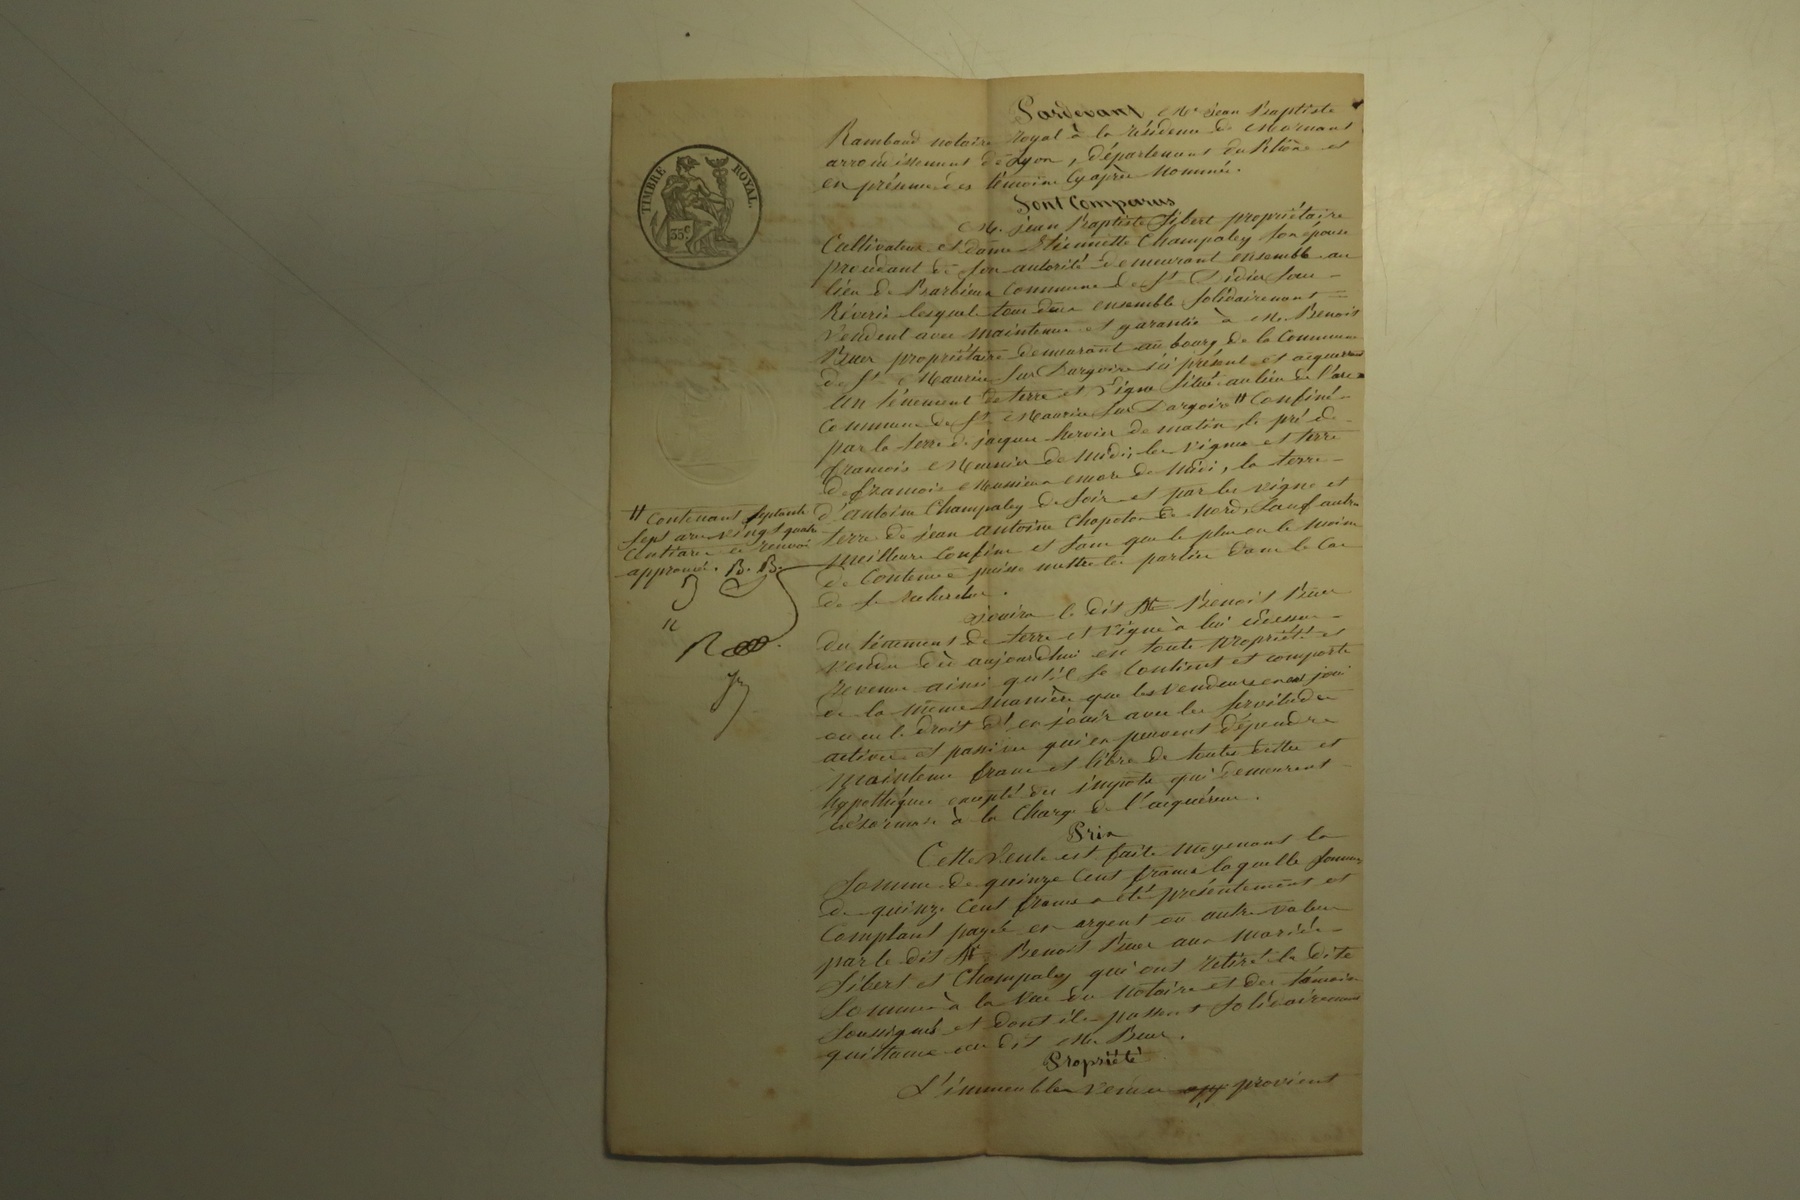 TIMBRE ROYAL.
35c
Pardevant Me Jean Baptiste
Rambaud notaire royal à la résidence de Mornant
arrondissement de Lyon, département du Rhône et
en présence des témoins cy après nommés.
Sont Comparus
M. jean Baptiste Sibert propriétaire
Cultivateur et dame Etiennette Champaley son épouse
procédant de son autorité demeurant ensemble au
lieu de commune de St Didier sous
Riverie lesquels tous deux ensemble solidairement
vendent avec maintenue et garantie à M. Benoit
propriétaire demeurant au bourg de la Commune
de St Maurice sur Dargoire ici présent et acquereur
un ténement de terre et vigne situé au lieu de
commune de St Maurice sur Dargoire " Confiné
par la terre de jacques hervier de matin, le pré de
francois Meunier de midi, les vignes et terre
de francois encore de midi, la terre
d'antoine Champaley de soir et par les vigne et
terre de jean antoine Chopoton de Nord, sauf autre
meilleurs confins et sans que le plus ou le moins
de Contenue puisse mettre les parties dans le Cas
de se rechercher.
" Contenant septante
sept ares vingt quatre
Centiares ce renvoi
approuvé. B. B.
Jouira le dit Benoit
du ténement de terre et vigne à lui cidessus
vendu dès aujourdhui en toute propriété et
revenu ainsi qu'il se Contient et comporte
de la même manière que les vendeurs en jouï
ou eu le droit d'en jouir avec les servitudes
actives et passives qui en peuvent dépendre
maintenu franc et libre de toutes dettes et
hypothéques excepté des impots qui demeurent
désormais à la Charge de l'acquéreur.
Prix
Cette Vente est faite moyenant la
somme de quinze cent francs laquelle somme
de quinze Cent francs a été présentement et
Comptant payée en argent ou autre valeur
par le dit Benoit aux mariés
Sibert et Champaley qui ont retiré la dite
Somme à la vue du Notaire et des témoins
soussignés et dont ils passent solidairement
quittance au dit
Propriété
L'immeuble vendu provient